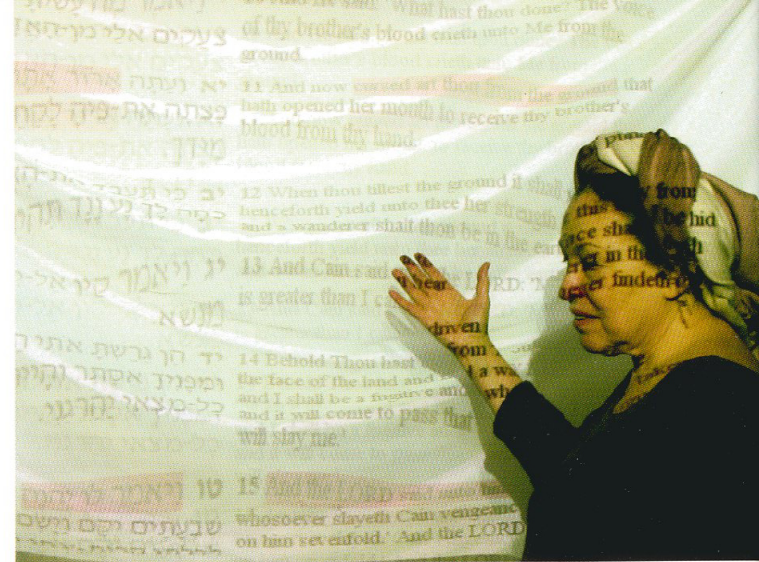 וַיֹּאמֶר מֶה עָשִׂיתָ
צֹעֲקִים אֵלַי מִן־הָאֲד
יא וְעַתָּה אָרוּר אָתָּה
פָּצְתָה אֶת־פִּיהָ לָקַח
מִיָּדֶךָ
יב כִּי תַעֲבֹד אֶת־הָ
כֹּחָהּ לָךְ נָע וָנָד תִּהְ
יג וַיֹּאמֶר קַיִן אֶל־י
מִנְּשֹׂא
יד הֵן גֵּרַשְׁתָּ אֹתִי הַ
וּמִפָּנֶיךָ אֶסָּתֵר וְהָיִי
כָל־מֹצְאִי יַהַרְגֵנִי.
טו וַיֹּאמֶר לוֹ יְהוָה
שִׁבְעָתַיִם יֻקָּם וַיָּשֶׂם
10 And He said: 'What hast thou done? The voice
of thy brother's blood crieth unto Me from the
ground.
11 And now cursed art thou from the ground that
hath opened her mouth to receive thy brother's
blood from thy hand.
12 When thou tillest the ground it shall
henceforth yield unto thee her strength
and a wanderer shalt thou be in the ear
13 And Cain said the LORD: 'M
is greater than I c
14 Behold Thou hast driven from
the face of the land and
and I shall be a fugitive and a wa
and it will come to pass that wh
will slay me.'
15 And the LORD said unto him
whosoever slayeth Cain vengeance
on him sevenfold.' And the LORD
y from
this
be hid
ace sha
er in th
findeth
bear